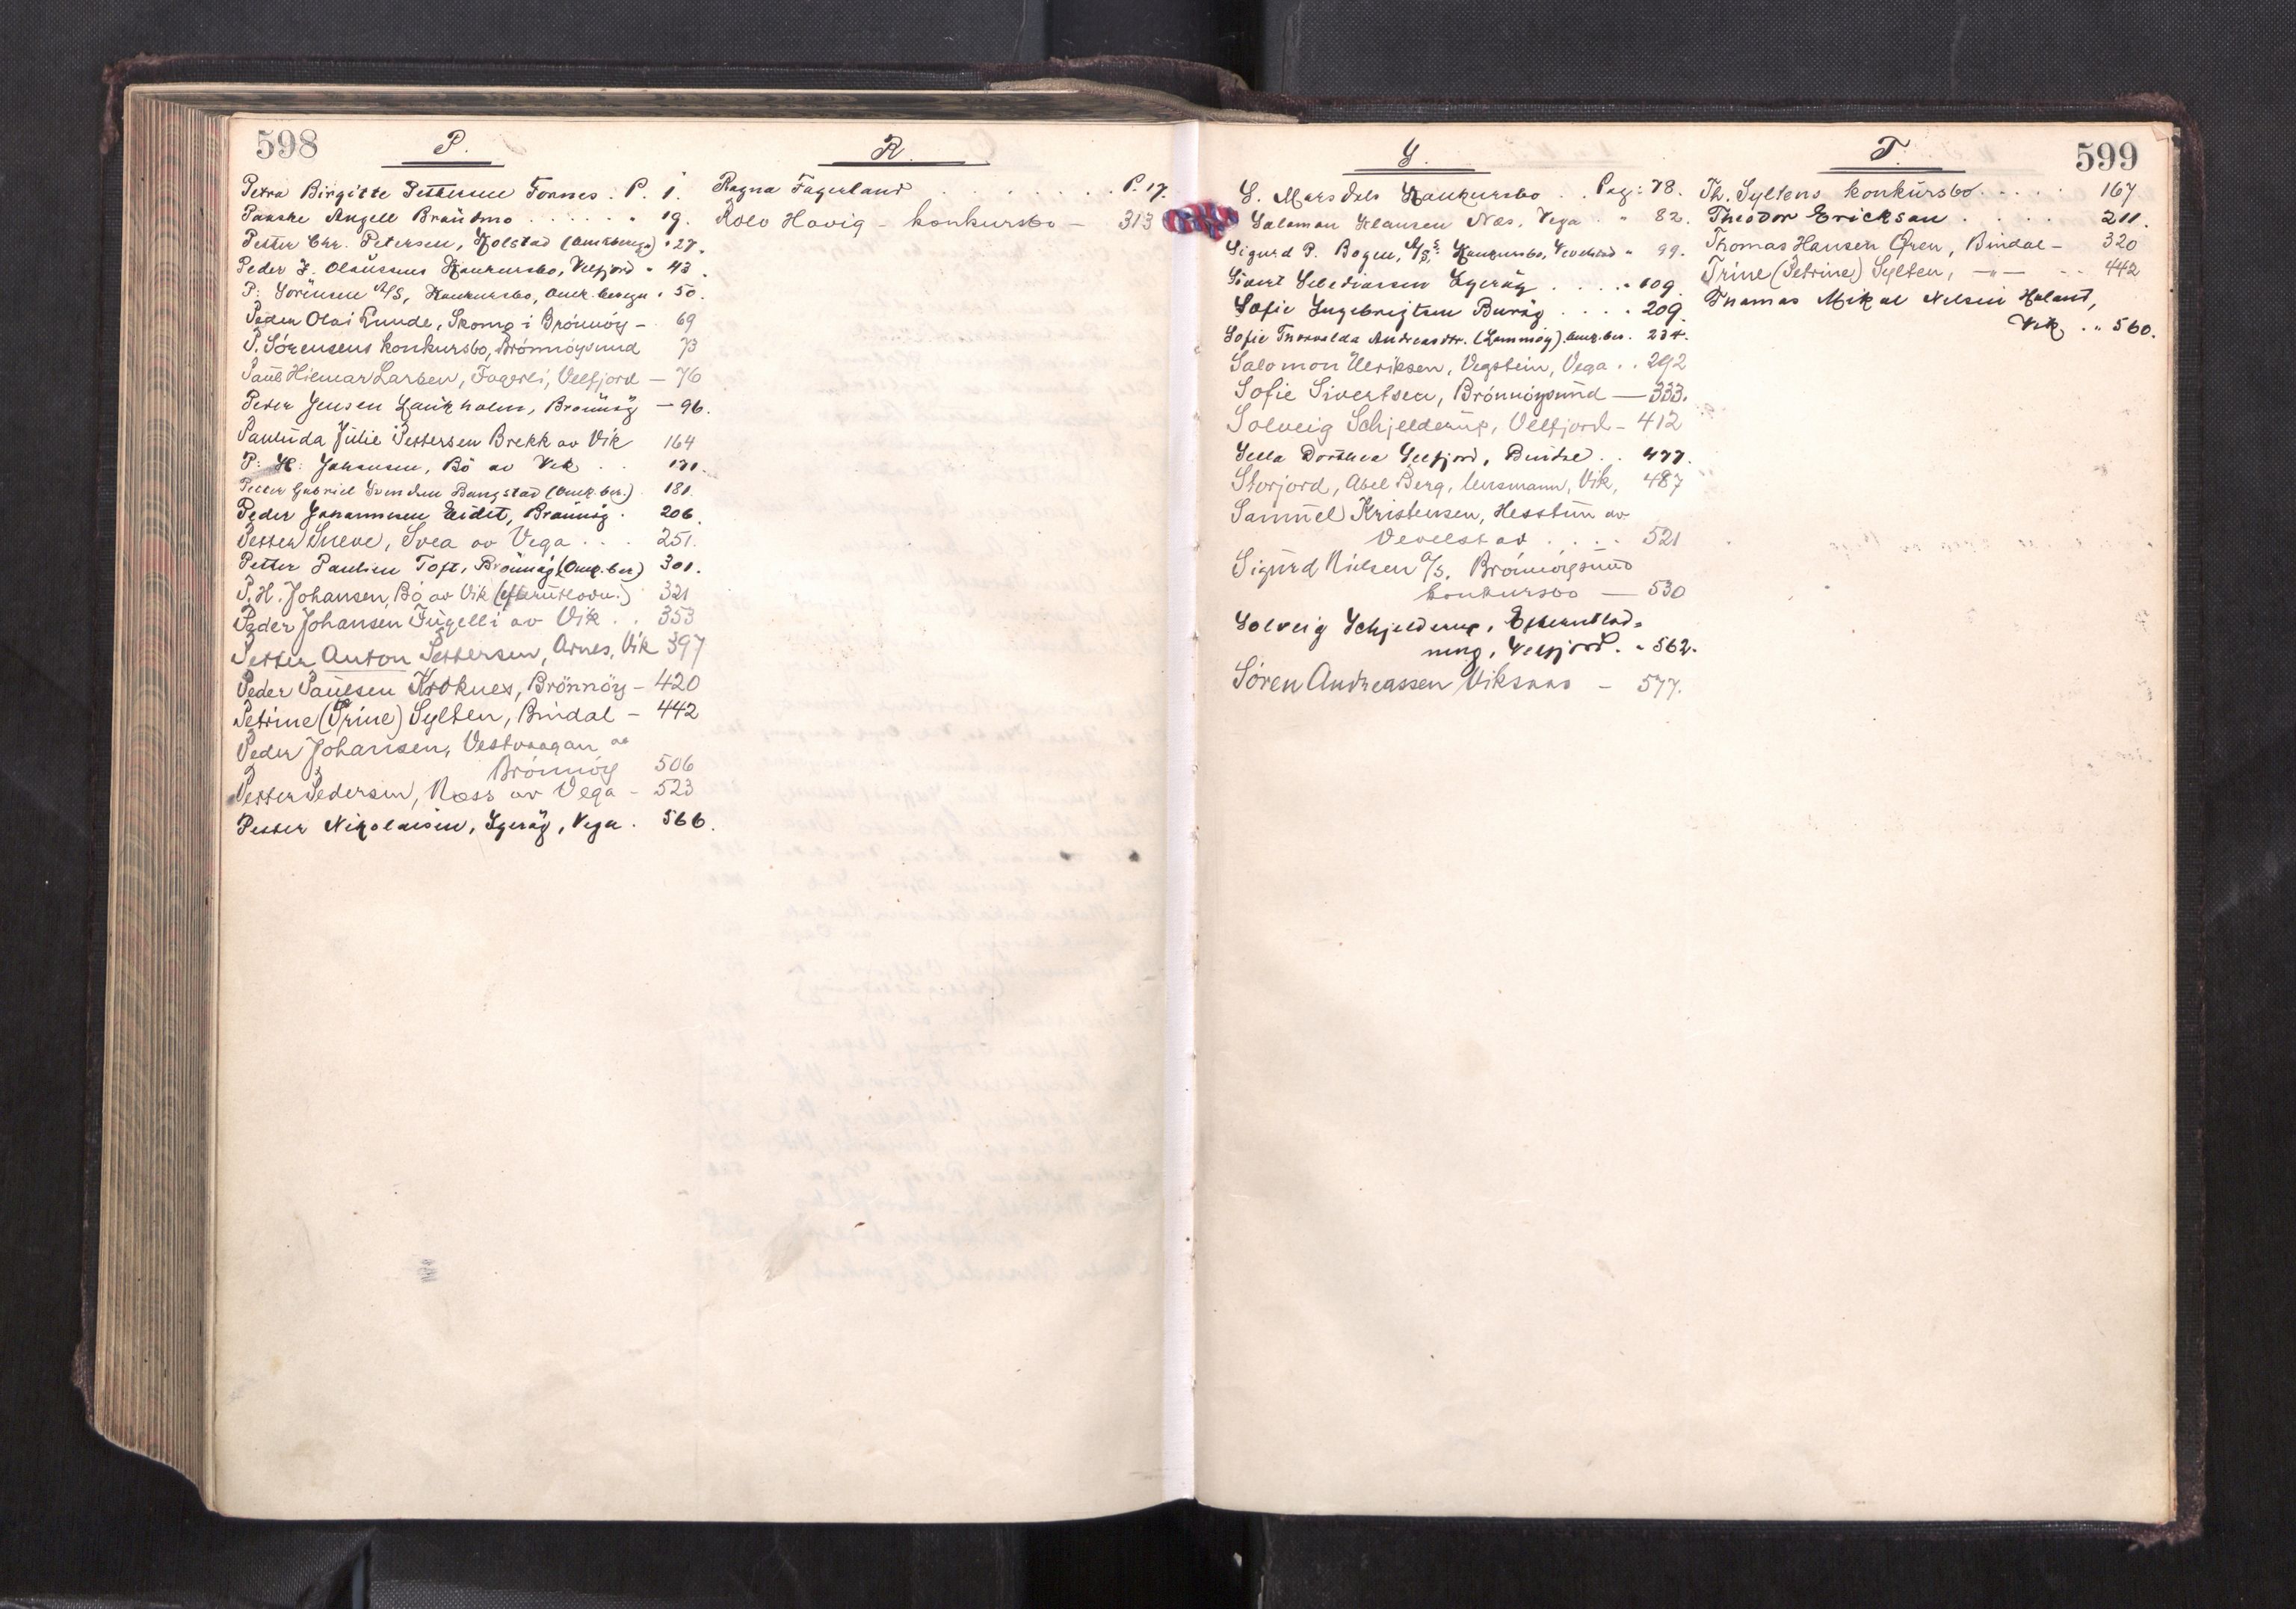 598
P.
Petra Birgitte Pettersen Tornes . P. 1.
Paaske Angell Brandmo . . . . . . " 19.
Petter Chr. Petersen, Holstad (Omk.beregn.) " 27.
Peder J. Olaussens Konkursbo, Velfjord " 43.
P. Sörensen A/S, Konkursbo, Omk. beregn " 50.
Peder Olai Lunde, Skomo i Brönnöy – 69
P. Sörensens konkursbo, Brönnöysund 73
Paul Hilmar Larsen, Fagerli, Velfjord – 76
Peter Jensen Langholm, Brönnöy – 96.
Paulida Julie Pettersen Brekk av Vik 164
P. H. Johansen, Bö av Vik . . 171.
Petter Gabriel Svendsen Bangstad (Omk.ber.) 181.
Peder Johannesen Eidet, Brönnöy . 206.
Petter Sneve, Svea av Vega . . . 251.
Petter Paulsen Toft, Brönnöy (Omk.ber) 301.
P. H. Johansen, Bö av Vik (efterutlodn.) 321
Peder Johansen Fugelli av Vik . . 353
Petter Anton Pettersen, Arnes, Vik 397
Peder Paulsen Kroknes, Brönnöy – 420
Petrine (Trine) Sylten, Bindal – 442
Peder Johansen, Vestvaagan av
Brönnöy 506
Petter Pedersen, Næss av Vega – 523
Petter Nikolaisen, Igeröy, Vega . 566.
R.
Ragna Fagerland . . . . . . . . P. 17.
Rolv Havig – konkursbo – 313
S.
S. Marsdels Konkursbo . . Pag: 78.
Salomon Klausen Nes, Vega . " 82.
Sigurd P. Bogen, A/S, Konkursbo, Vevelstad " 99.
Sivert Igeröy . . . . " 109.
Sofie Ingebrigtsen Buröy . . . . 209.
Sofie Thorvalda Andreasdtr. Omk.ber. 234.
Salomon Ulriksen, Vegstein, Vega . . 292
Sofie Sivertsen, Brönnöysund — 333.
Solveig Schjelderup, Velfjord – 412
Sella Dorthea Selfjord, Bindal . . 477.
Storjord, Abel Berg, lensmann, Vik, 487
Samuel Kristensen, Hesstun av
Vevelstad . . . . 521
Sigurd Nielsen A/S. Brönnöysund
konkursbo — 530
Solveig Schjelderup, Efterutlod-
ning, Velfjord. " 562.
Sören Andreassen Viksaas – 577.
599
T.
Th. Syltens konkursbo . . . . . 167
Theodor Erickson . . . . . 211.
Thomas Hansen Øren, Bindal – 320
Trine (Petrine) Sylten, —"— -- 442
Thomas Mikal Nelsen Holand,
Vik . . " 560.